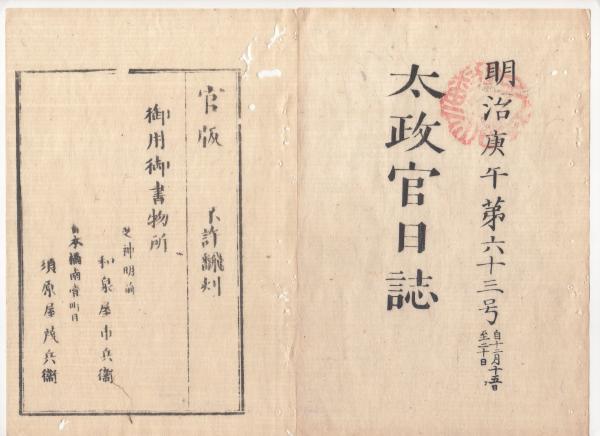 明治庚午第六十三号
自十二月十五日
至二十日
太政官日誌
官版 不許翻刻
御用御書物所
芝神明前
和泉屋市兵衛
日本橋南壹町目
須原屋茂兵衛